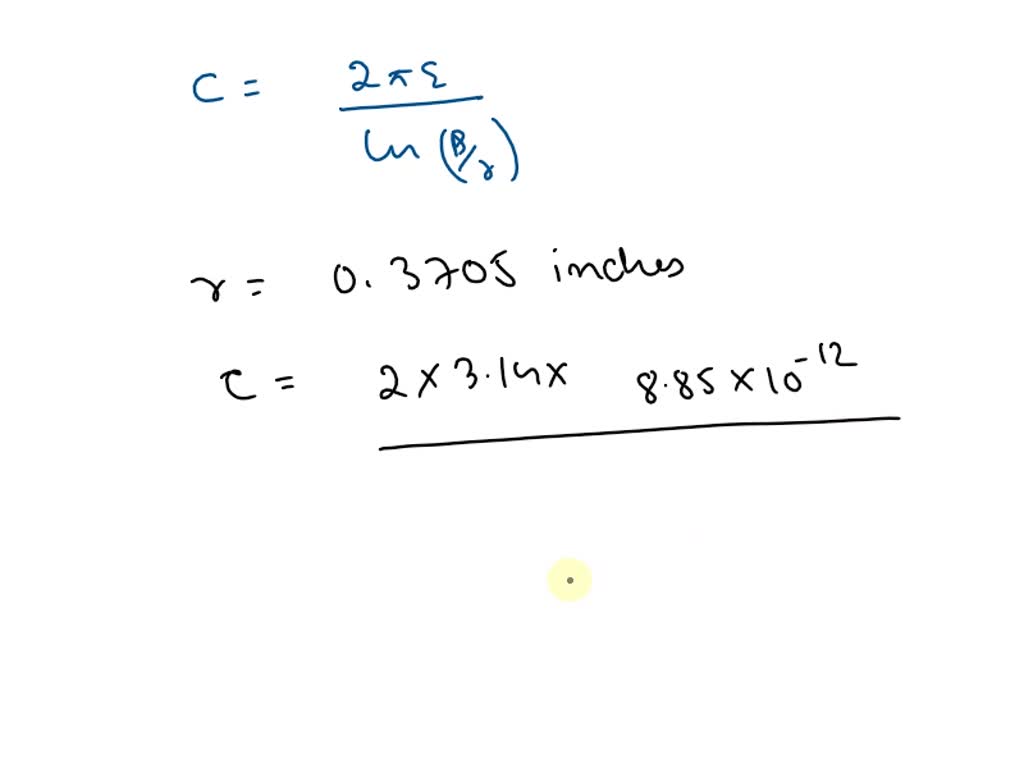 C = 2πε / ln (B/r)
r = 0.3705 inches
C = 2 × 3.14 × 8.85 × 10^-12